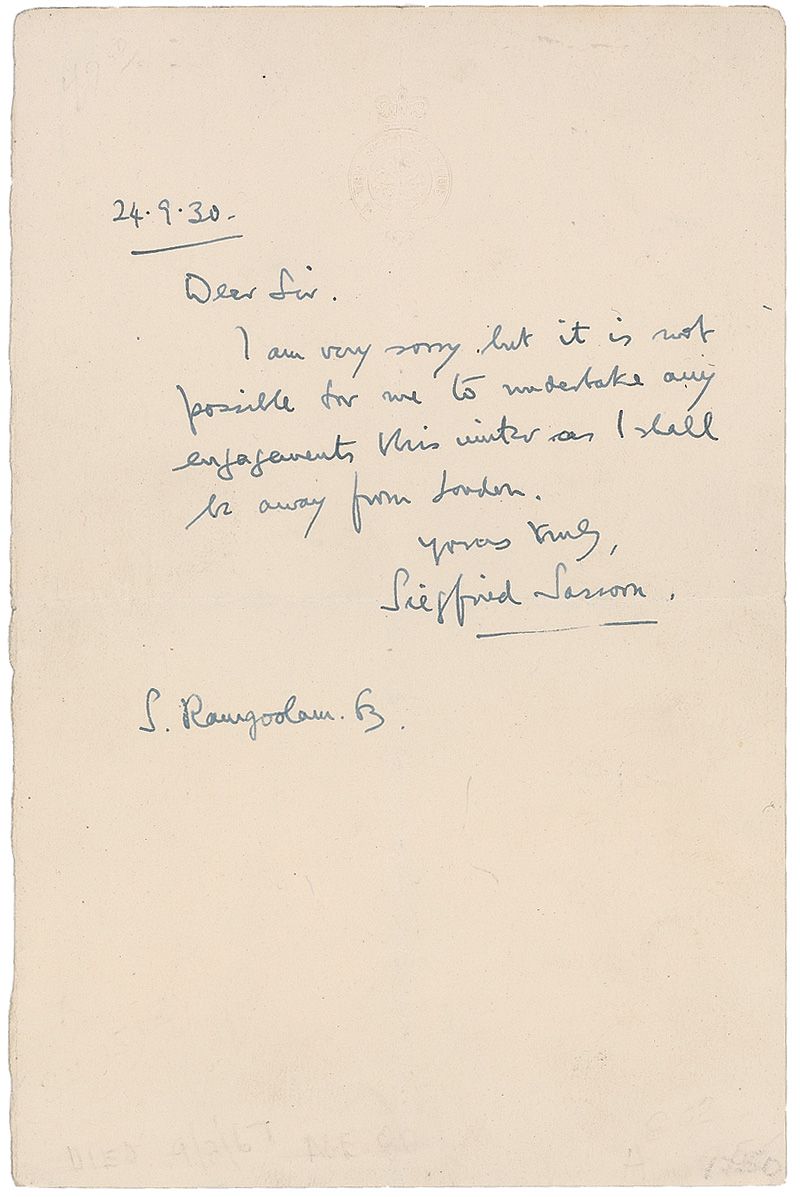 24.9.30.
Dear Sir.
I am very sorry but it is not
possible for me to undertake any
engagements this winter as I shall
be away from London.
Yours truly,
Siegfried Sassoon.
S. Ramgoolam.